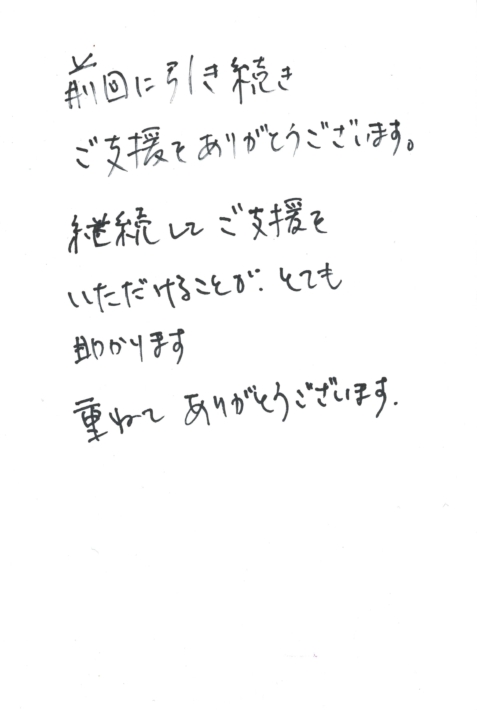 前回に引き続き
ご支援をありがとうございます。
継続して ご支援を
いただけることが、とても
助かります
重ねて ありがとうございます.